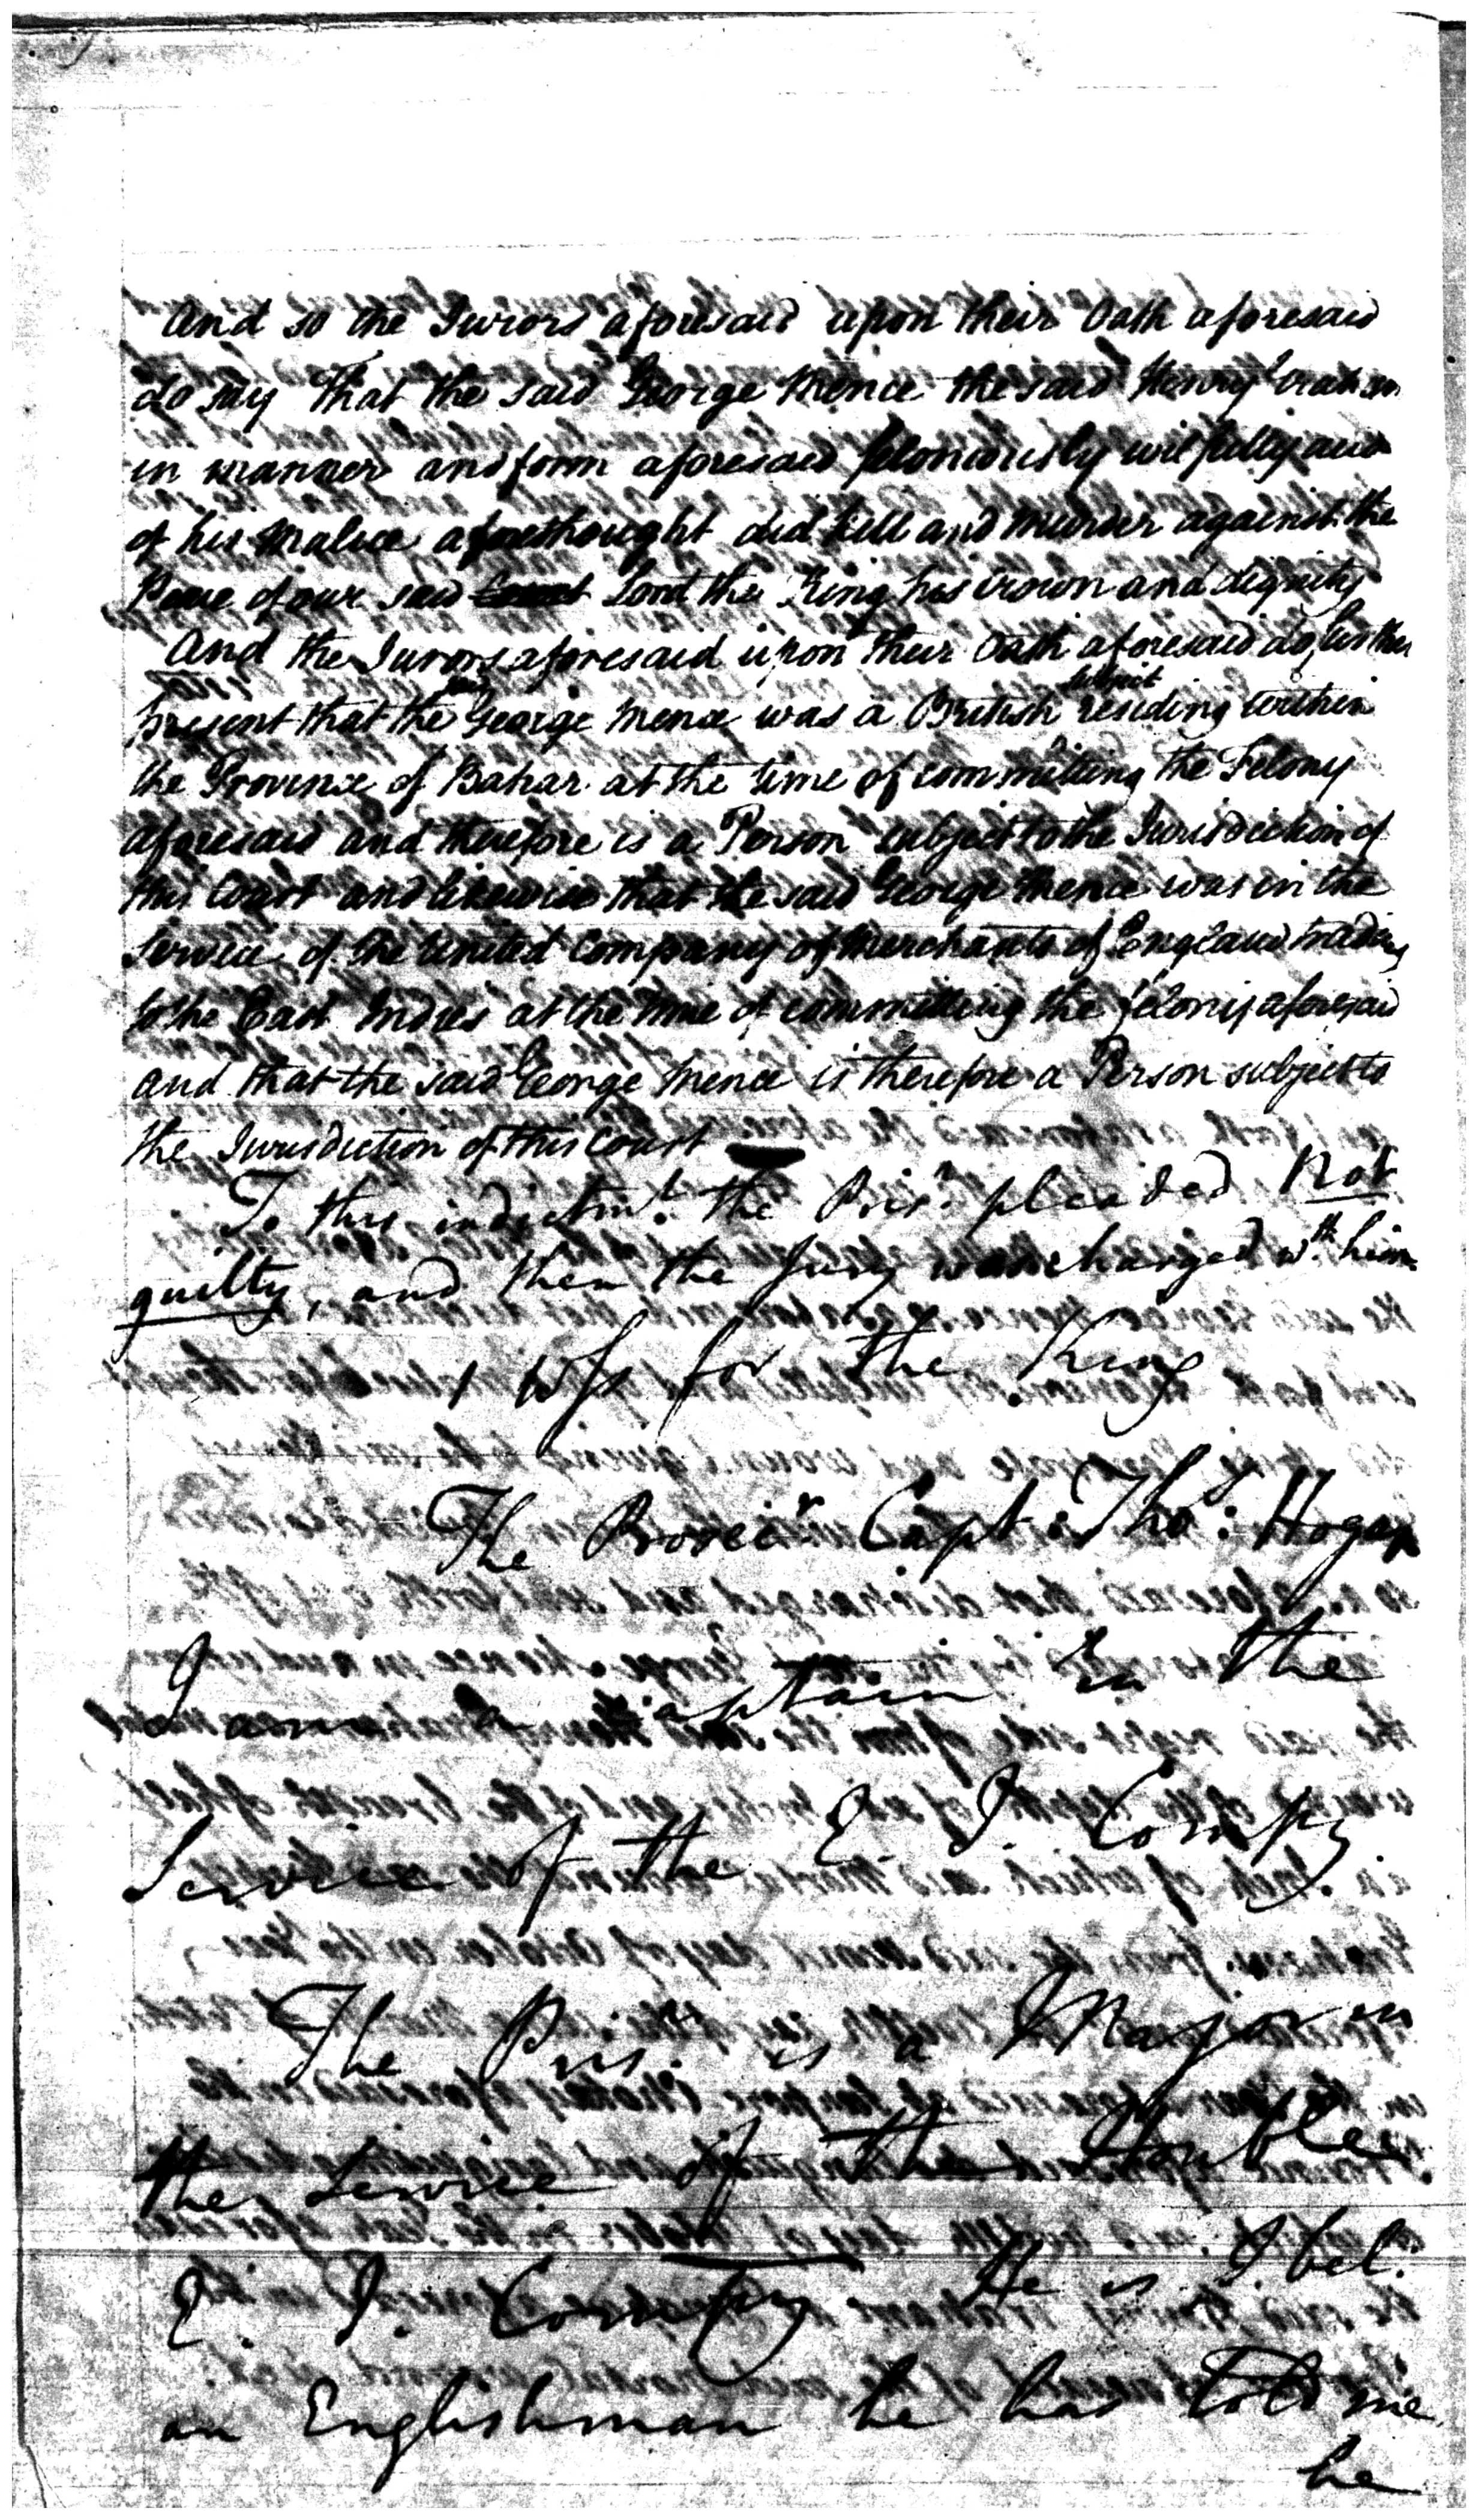 And so the Jurors aforesaid upon their Oath aforesaid
do say that the said George Mence the said Henry Graham
in manner and form aforesaid feloniously wilfully and
of his Malice aforethought did kill and Murder against the
Peace of our said Lord the King his Crown and dignity
And the Jurors aforesaid upon their Oath aforesaid do further
present that the said George Mence was a British subject residing within
the Province of Bahar at the time of committing the Felony
aforesaid and therefore is a Person subject to the Jurisdiction of
this Court and likewise that the said George Mence was in the
Service of the United Company of Merchants of England trading
to the East Indies at the time of committing the felony aforesaid
and that the said George Mence is therefore a Person subject to
the Jurisdiction of this Court
To this indictmt. the Prisr. pleaded Not
guilty, and then the Jury was charged wth him
1 Wss for the King
The Prosecr. Capt: Thos: Hogan
I am a Captain in the
Service of the E. I. Compy
The Prisr. is a Major in
the Service of the Honble
E. I. Compy He is I bel:
an Englishman he has told me
he